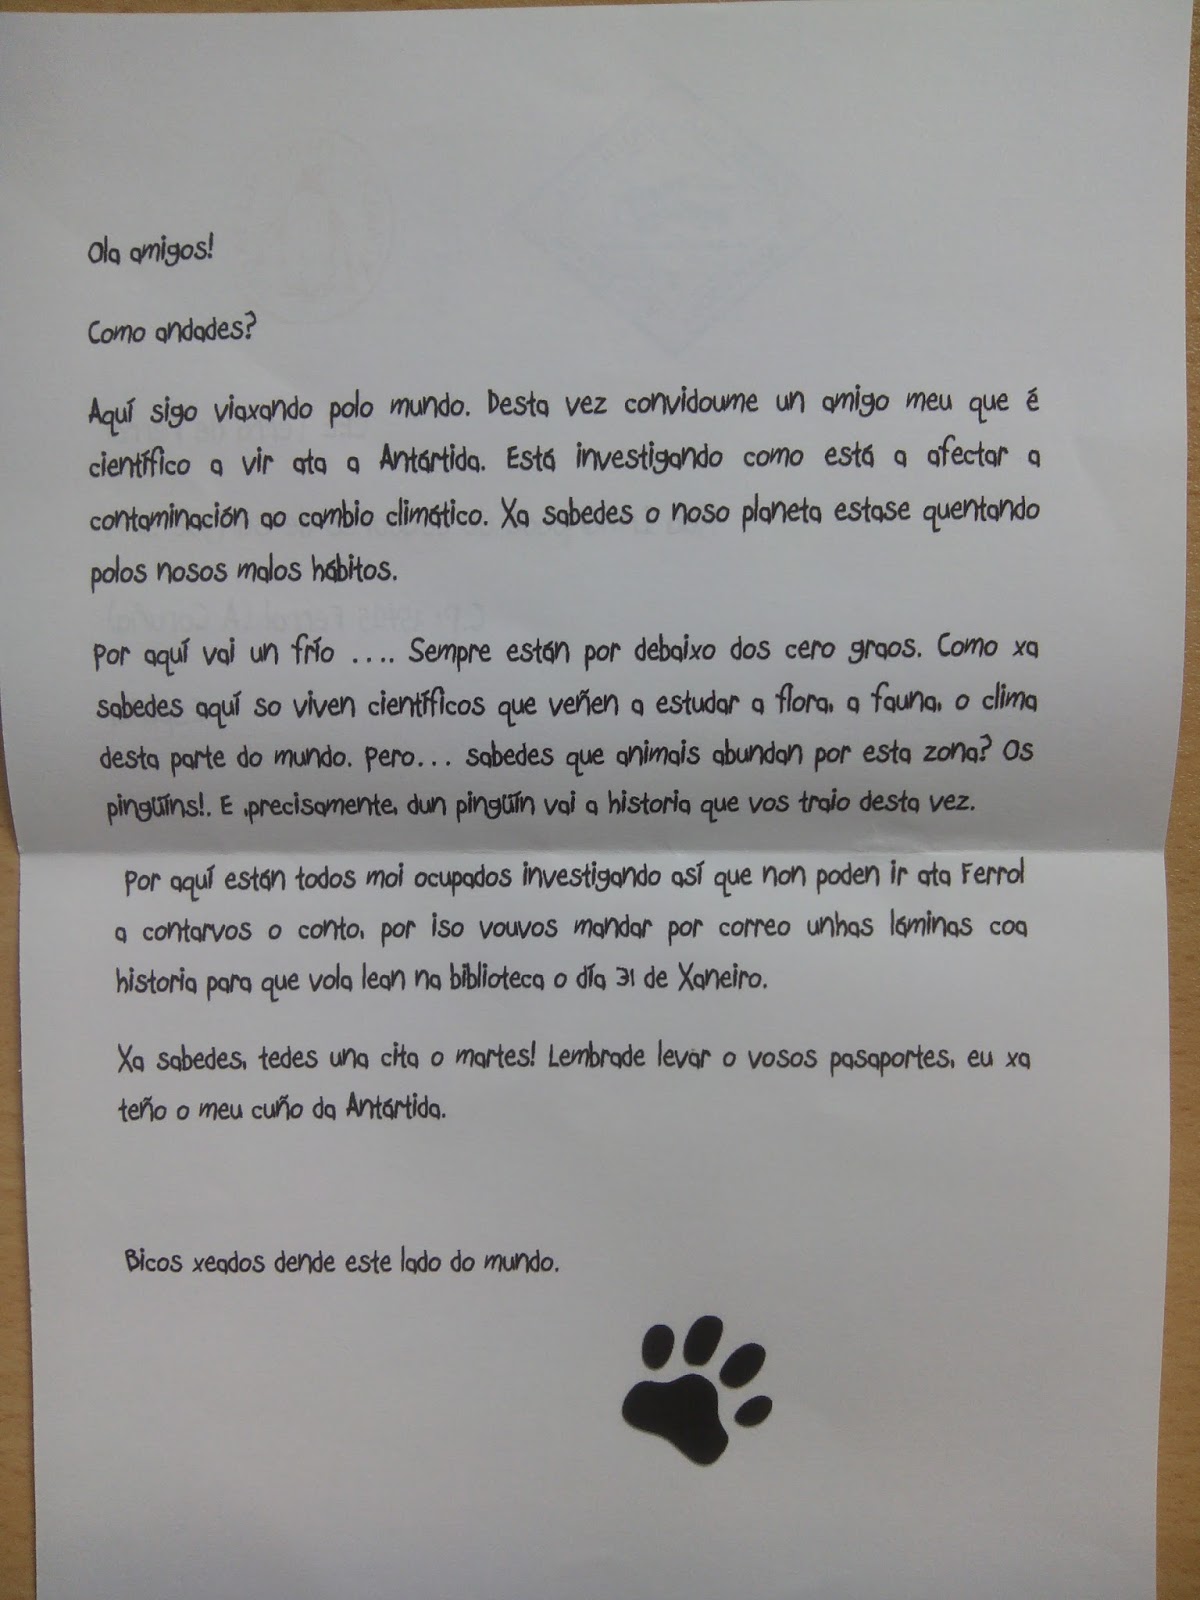 Ola amigos!
Como andades?
Aquí sigo viaxando polo mundo. Desta vez convidoume un amigo meu que é
científico a vir ata a Antártida. Está investigando como está a afectar a
contaminación ao cambio climático. Xa sabedes o noso planeta estase quentando
polos nosos malos hábitos.
Por aquí vai un frío .... Sempre están por debaixo dos cero graos. Como xa
sabedes aquí so viven científicos que veñen a estudar a flora, a fauna, o clima
desta parte do mundo. Pero... sabedes que animais abundan por esta zona? Os
pingüíns!. E ,precisamente, dun pingüín vai a historia que vos traio desta vez.
Por aquí están todos moi ocupados investigando así que non poden ir ata Ferrol
a contarvos o conto, por iso vouvos mandar por correo unhas láminas coa
historia para que vola lean na biblioteca o día 31 de Xaneiro.
Xa sabedes, tedes una cita o martes! Lembrade levar o vosos pasaportes, eu xa
teño o meu cuño da Antártida.
Bicos xeados dende este lado do mundo.